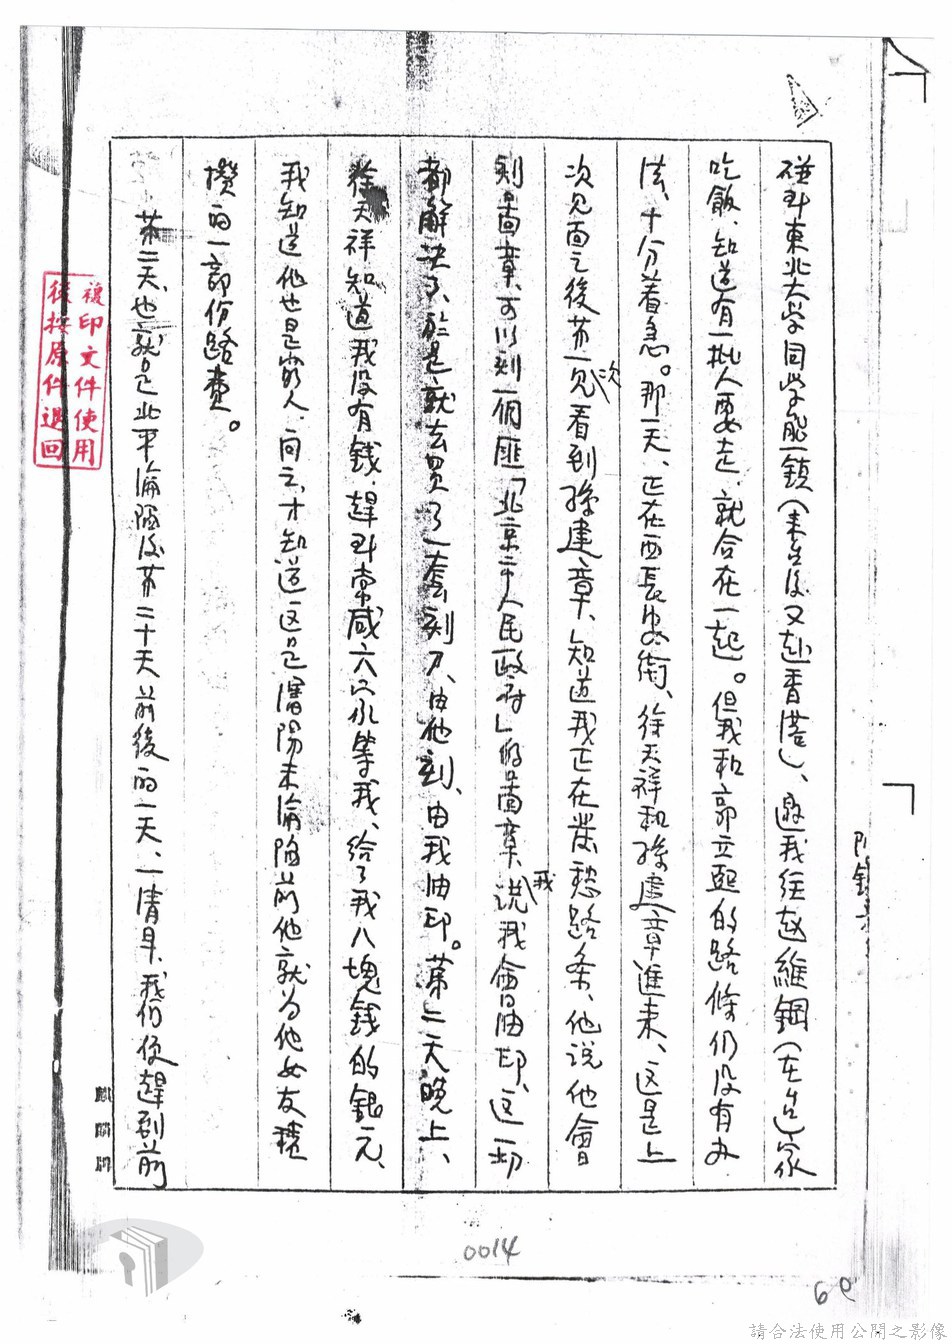 碰到東北大学同学熊鎮(来台後又赴香港)、邀我往赵維鋼(在台)家
吃飯、知道有一批人要走、就合在一起。但我和郭立熙的路條仍没有办
法、十分着急。那一天、正在西長安街、徐天祥和孫建章進来、这是上
次見面之後苐一次看到孫建章、知道我正在發愁路条、他説他會
刻啚章、可以刻一個匪「北京市人民政府」的啚章、我説我會油印、这一切
都解决了、於是就去買了一套刻刀、由他刻、由我油印。第二天晚上、
徐天祥知道我没有錢、趕到常咸六穴水等我、给了我八塊錢的銀元、
我知道他也是窮人、问之、才知道这是瀋陽未淪陷前他就为他女友積
攢的一部份路費。
苐二天、也就是北平淪陷后苐二十天前後的一天、一清早、我们便趕到前
複印文件使用
後按原件退回
0014
69
請合法使用公開之影像